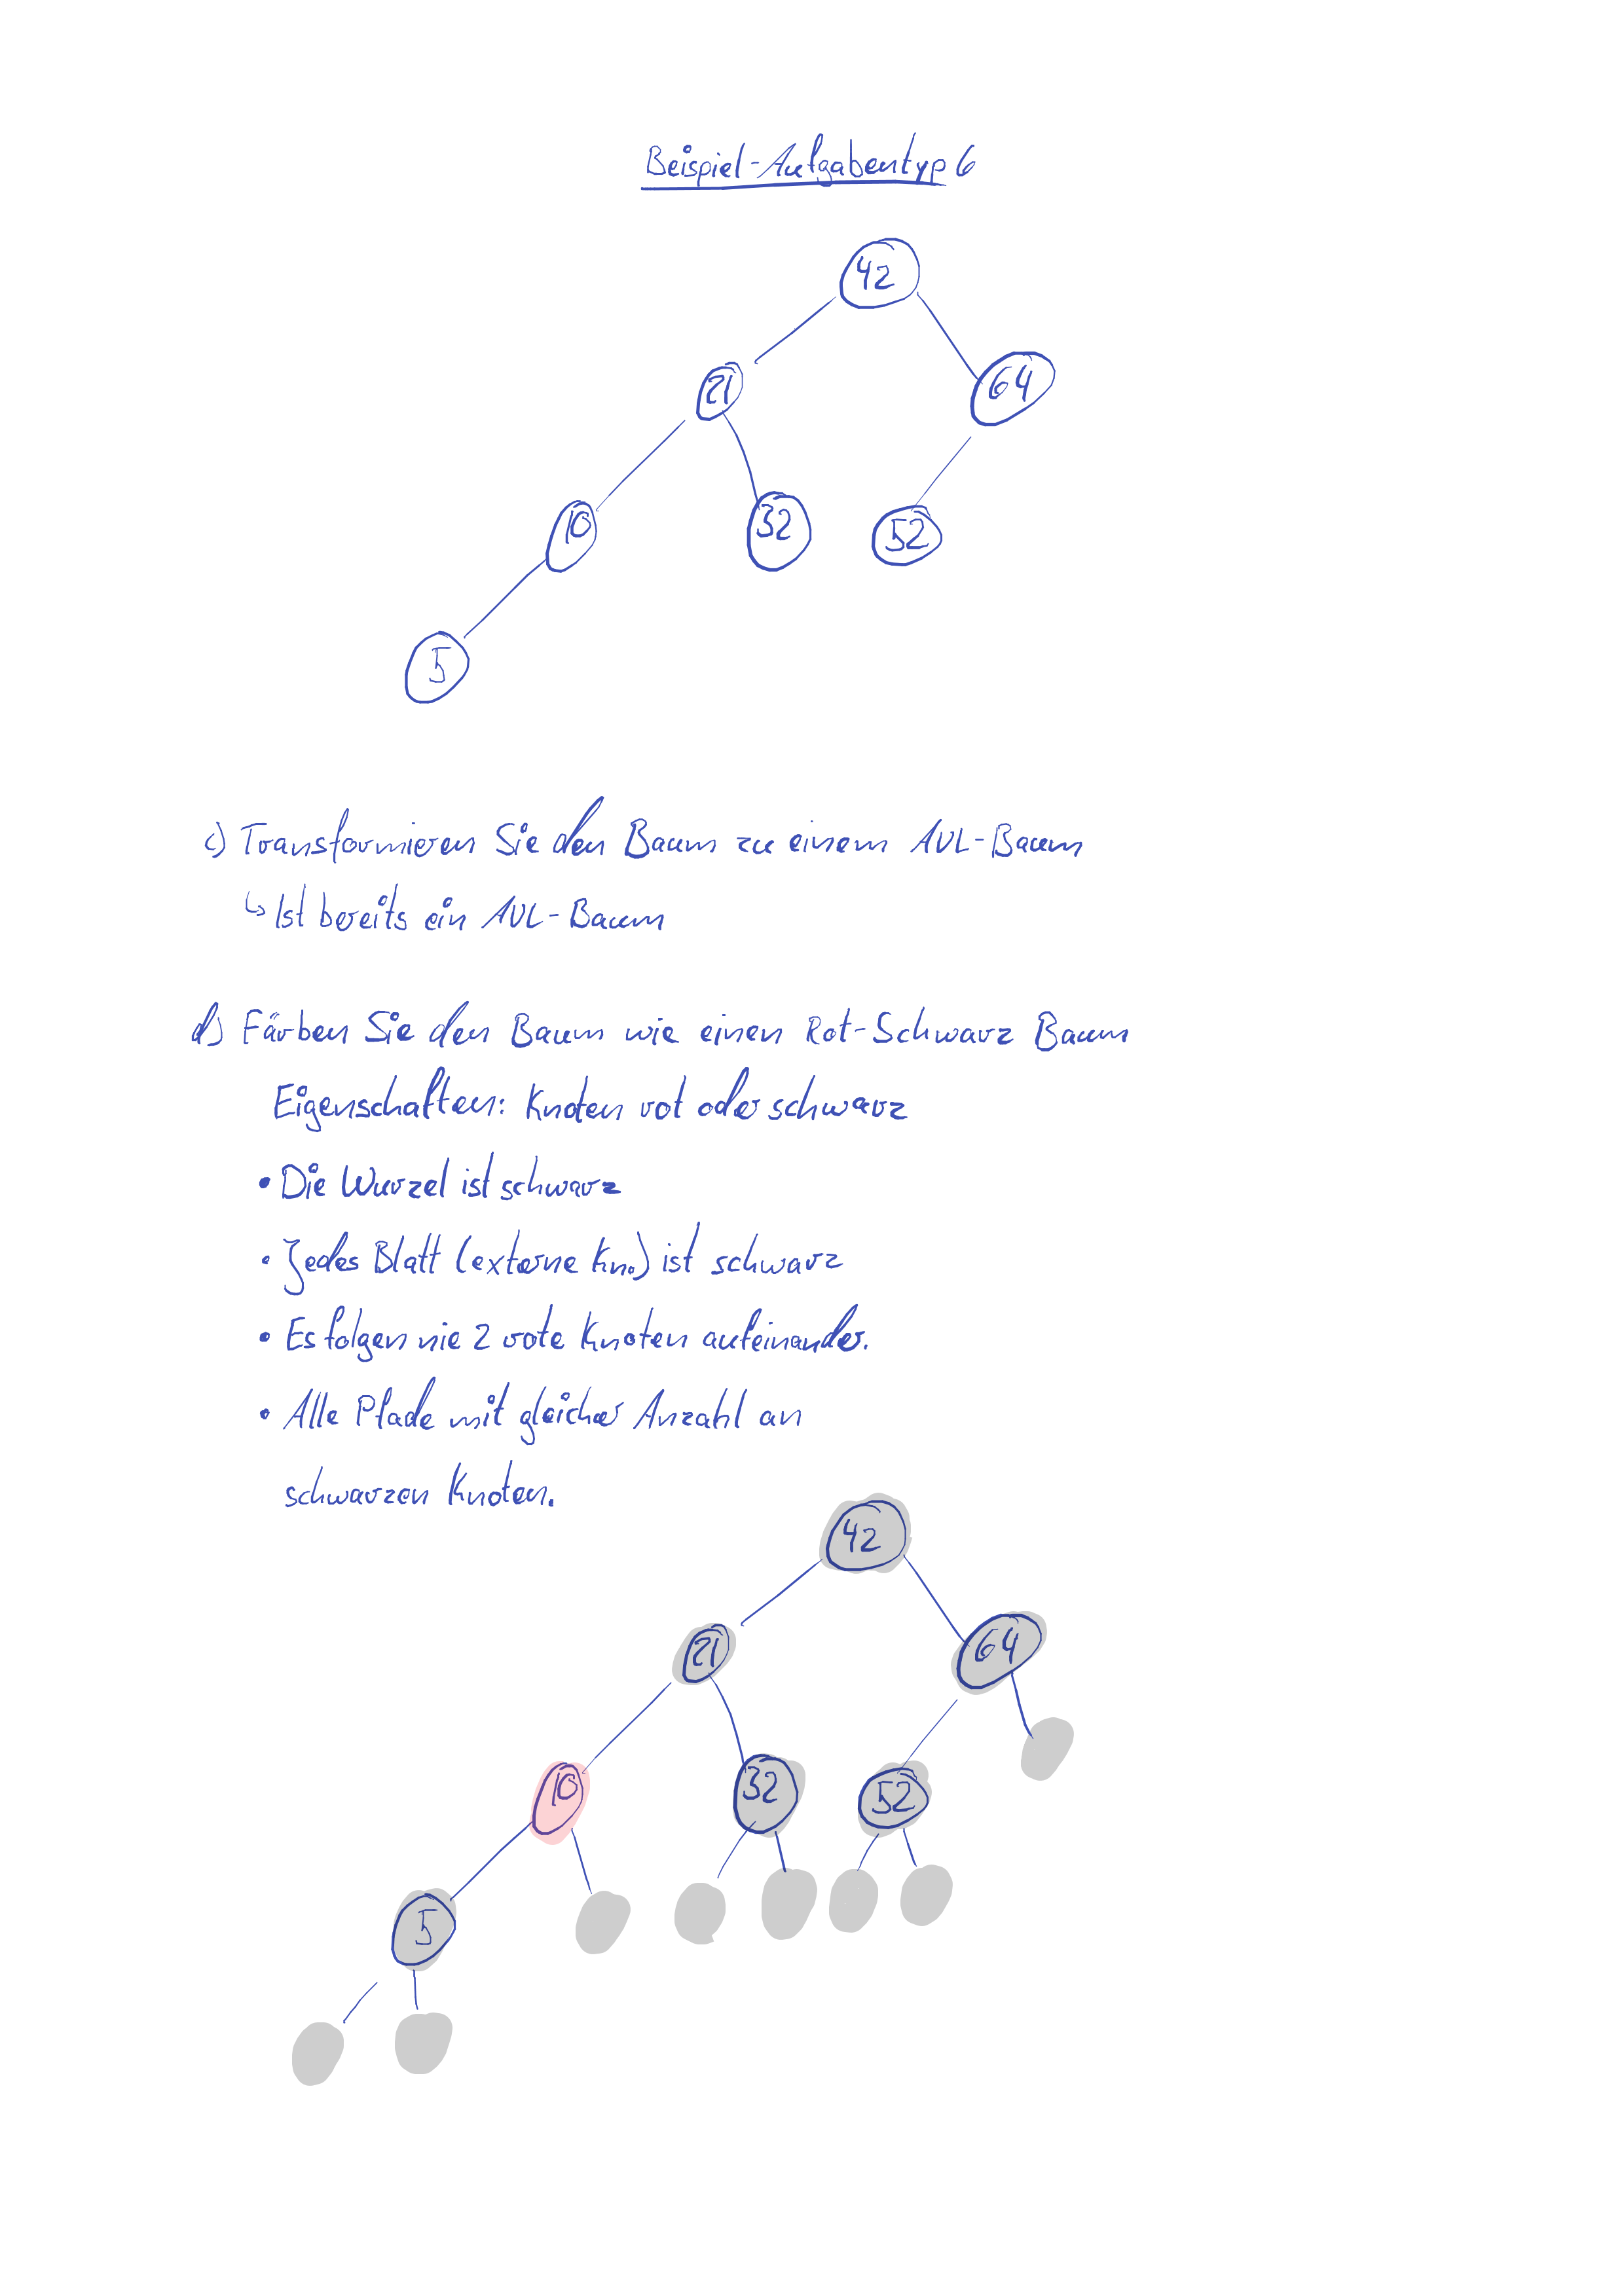 Beispiel-Aufgabentyp 6
42
21
64
10
32
52
5
c) Transformieren Sie den Baum zu einem AVL-Baum
↳ Ist bereits ein AVL-Baum
d) Färben Sie den Baum wie einen Rot-Schwarz Baum
Eigenschaften: Knoten rot oder schwarz
• Die Wurzel ist schwarz
• Jedes Blatt (externe Kn.) ist schwarz
• Es folgen nie 2 rote Knoten aufeinander.
• Alle Pfade mit gleicher Anzahl an
schwarzen Knoten.
42
21
64
10
32
52
5